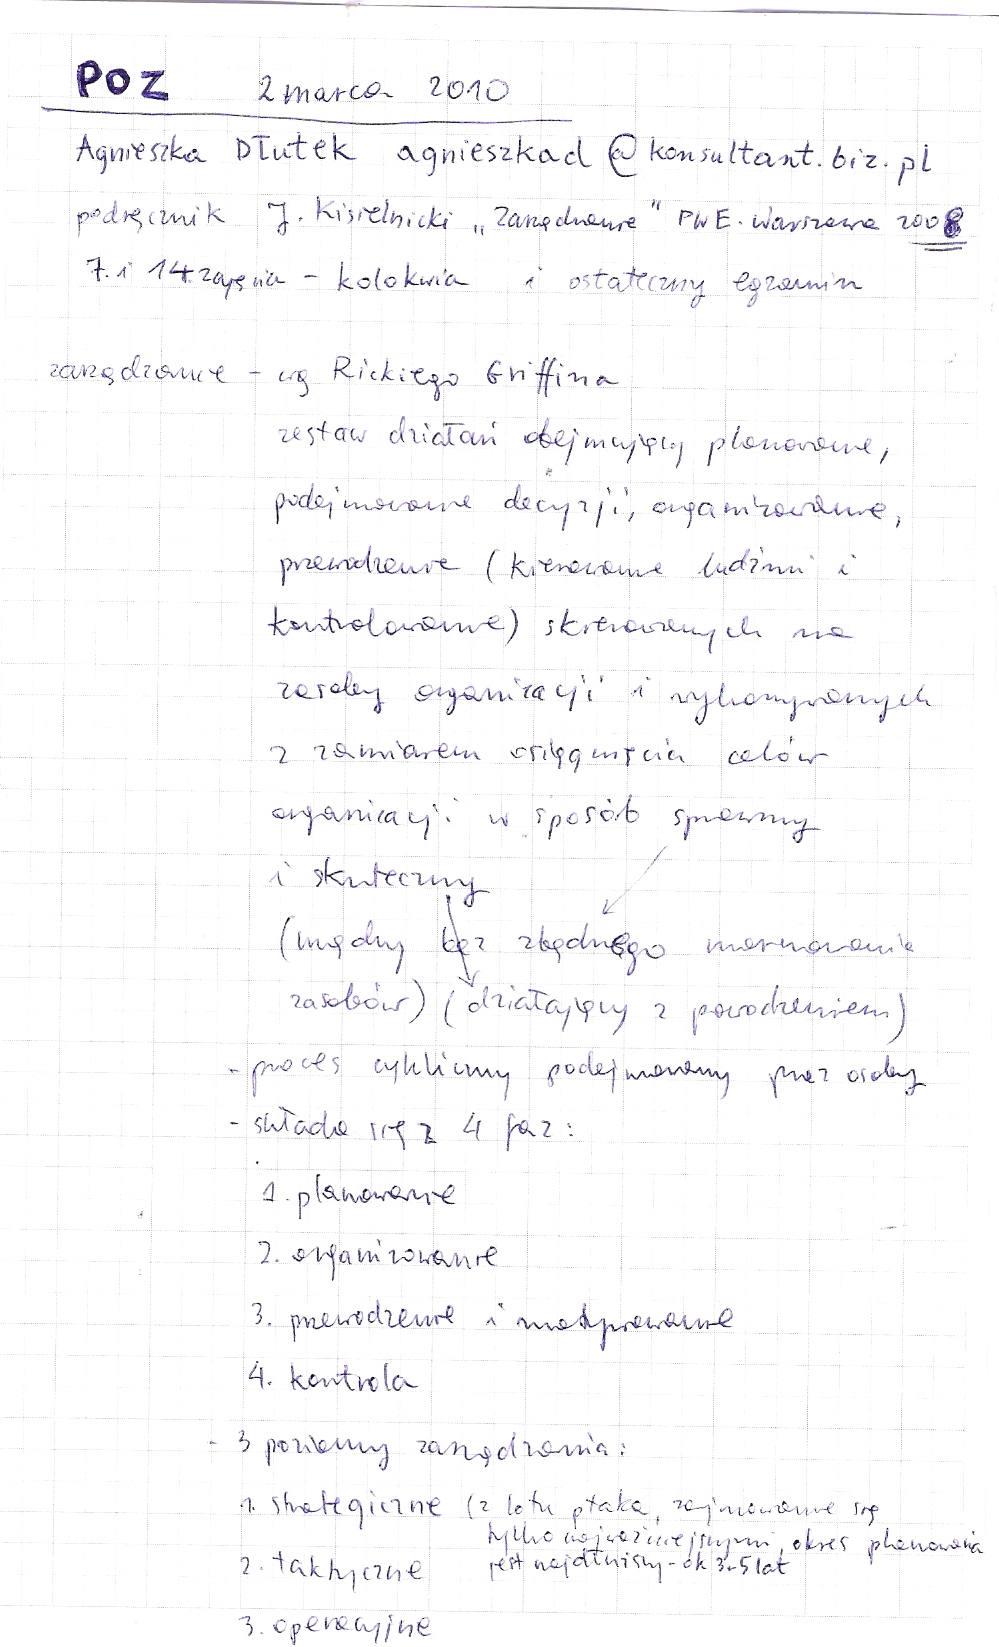 POZ 2 marca 2010
Agnieszka Dłutek agnieszkad@konsultant.biz.pl
podręcznik J. Kisielnicki „Zarządzanie” PWE. Warszawa 2008
7. i 14 zajęcia - kolokwia i ostateczny egzamin
zarządzanie - wg Rickiego Griffina
zestaw działań obejmujący planowanie,
podejmowanie decyzji, organizowanie,
przewodzenie (kierowanie ludźmi i
kontrolowanie) skierowanych na
zasoby organizacji i wykonywanych
z zamiarem osiągnięcia celów
organizacji w sposób sprawny
i skuteczny
(mądry bez zbędnego marnowania
zasobów) (działający z powodzeniem)
- proces cykliczny podejmowany przez osoby
- składa się z 4 faz:
1. planowanie
2. organizowanie
3. przewodzenie i motywowanie
4. kontrola
- 3 poziomy zarządzania:
1. strategiczne (z lotu ptaka, zajmowanie się
tylko najważniejszymi, okres planowania
jest najdłuższy - ok 3-5 lat
2. taktyczne
3. operacyjne